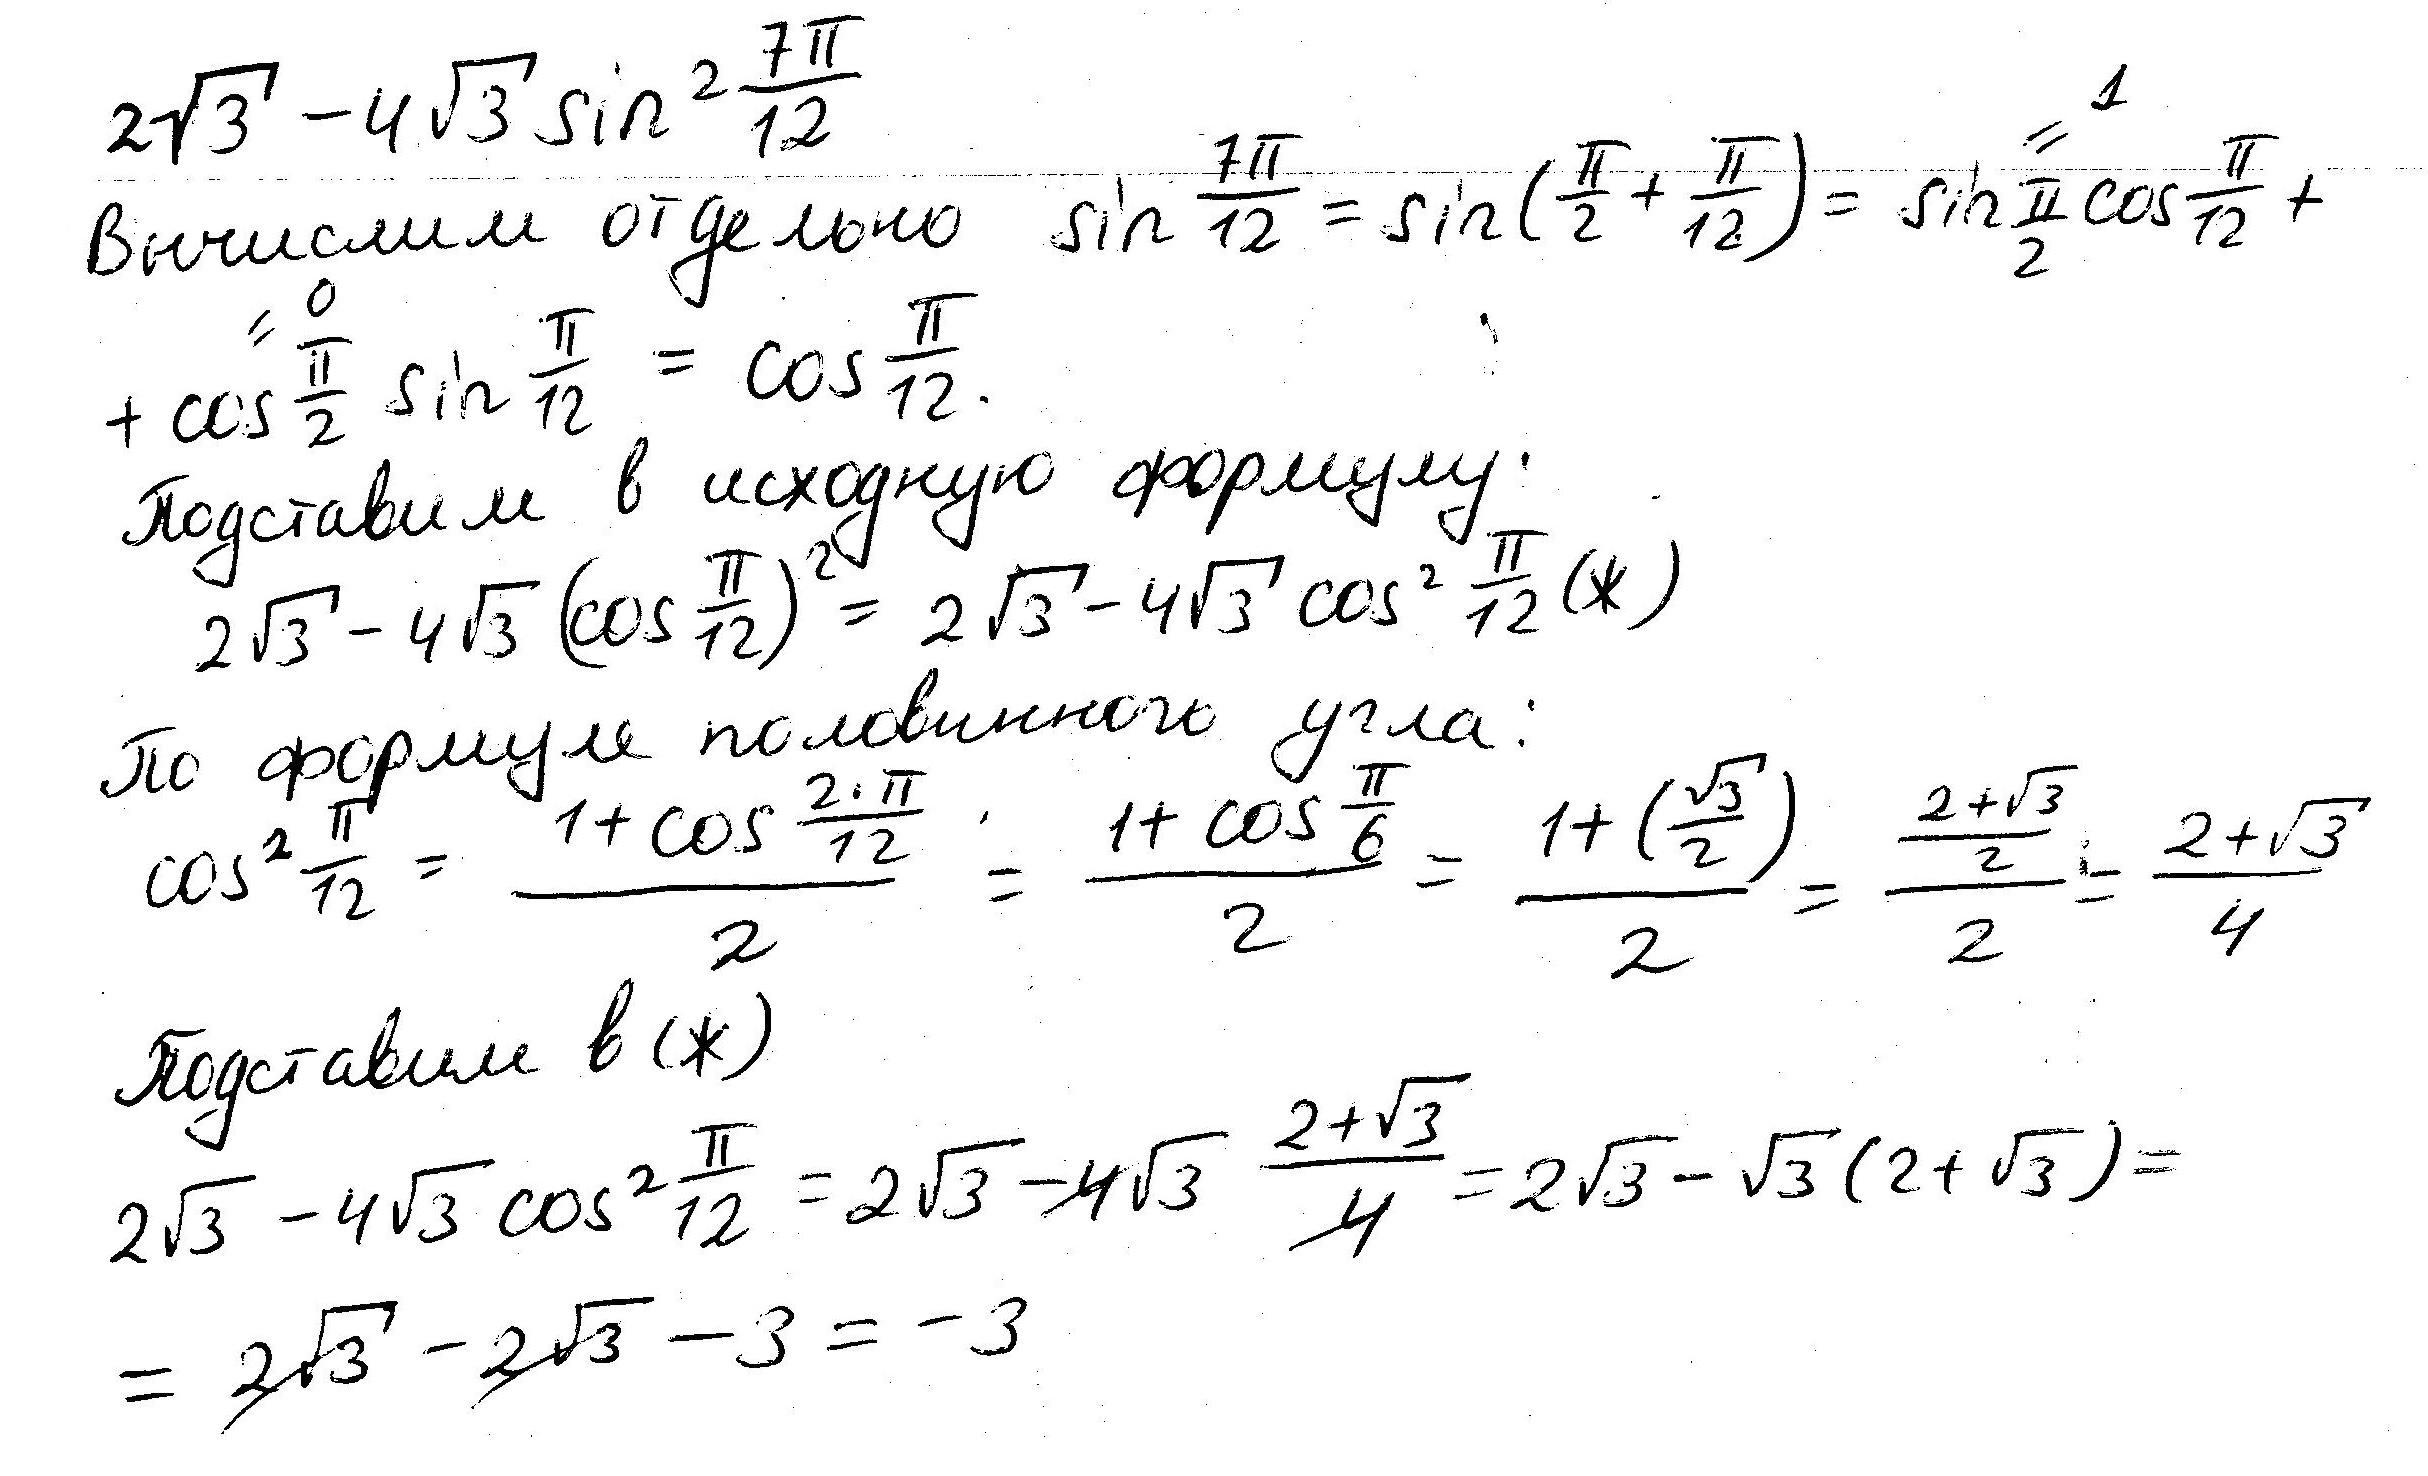 2√3 − 4√3 sin² 7π/12
Вычислим отдельно sin 7π/12 = sin(π/2 + π/12) = sin π/2 (= 1) cos π/12 +
+ cos π/2 (= 0) sin π/12 = cos π/12.
Подставим в исходную формулу:
2√3 − 4√3 (cos π/12)² = 2√3 − 4√3 cos² π/12 (*)
По формуле половинного угла:
cos² π/12 = (1 + cos (2·π)/12)/2 = (1 + cos π/6)/2 = (1 + (√3/2))/2 = ((2+√3)/2)/2 = (2+√3)/4
Подставим в (*)
2√3 − 4√3 cos² π/12 = 2√3 − 4√3 (2+√3)/4 = 2√3 − √3 (2+√3) =
= 2√3 − 2√3 − 3 = −3